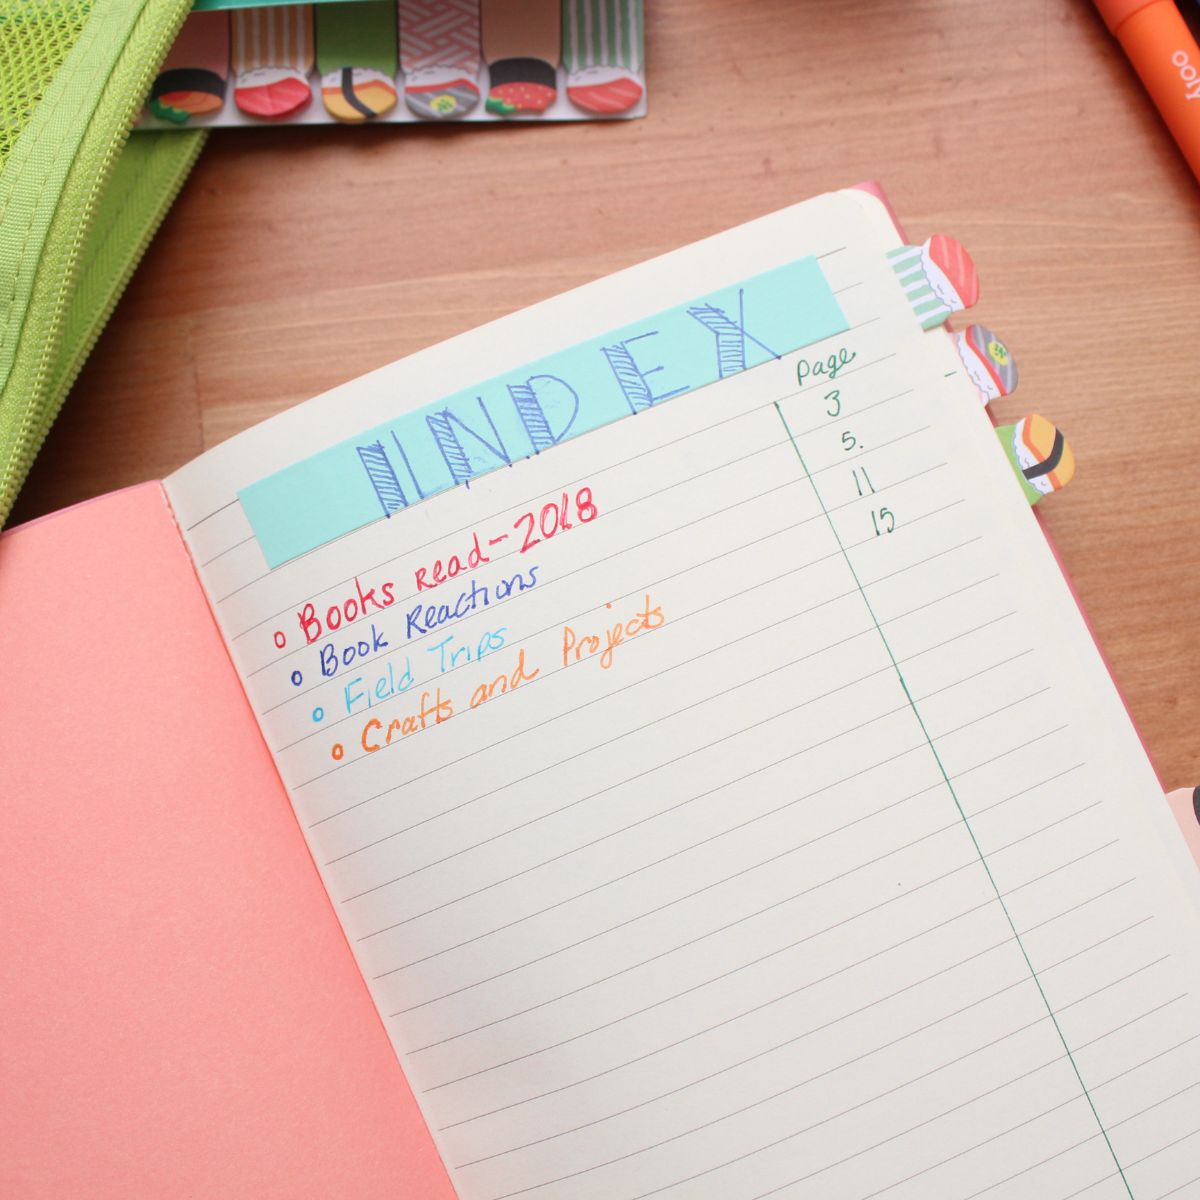 ooly
INDEX
Page
Books read-2018 3
Book Reactions 5.
Field Trips 11
Crafts and Projects 15